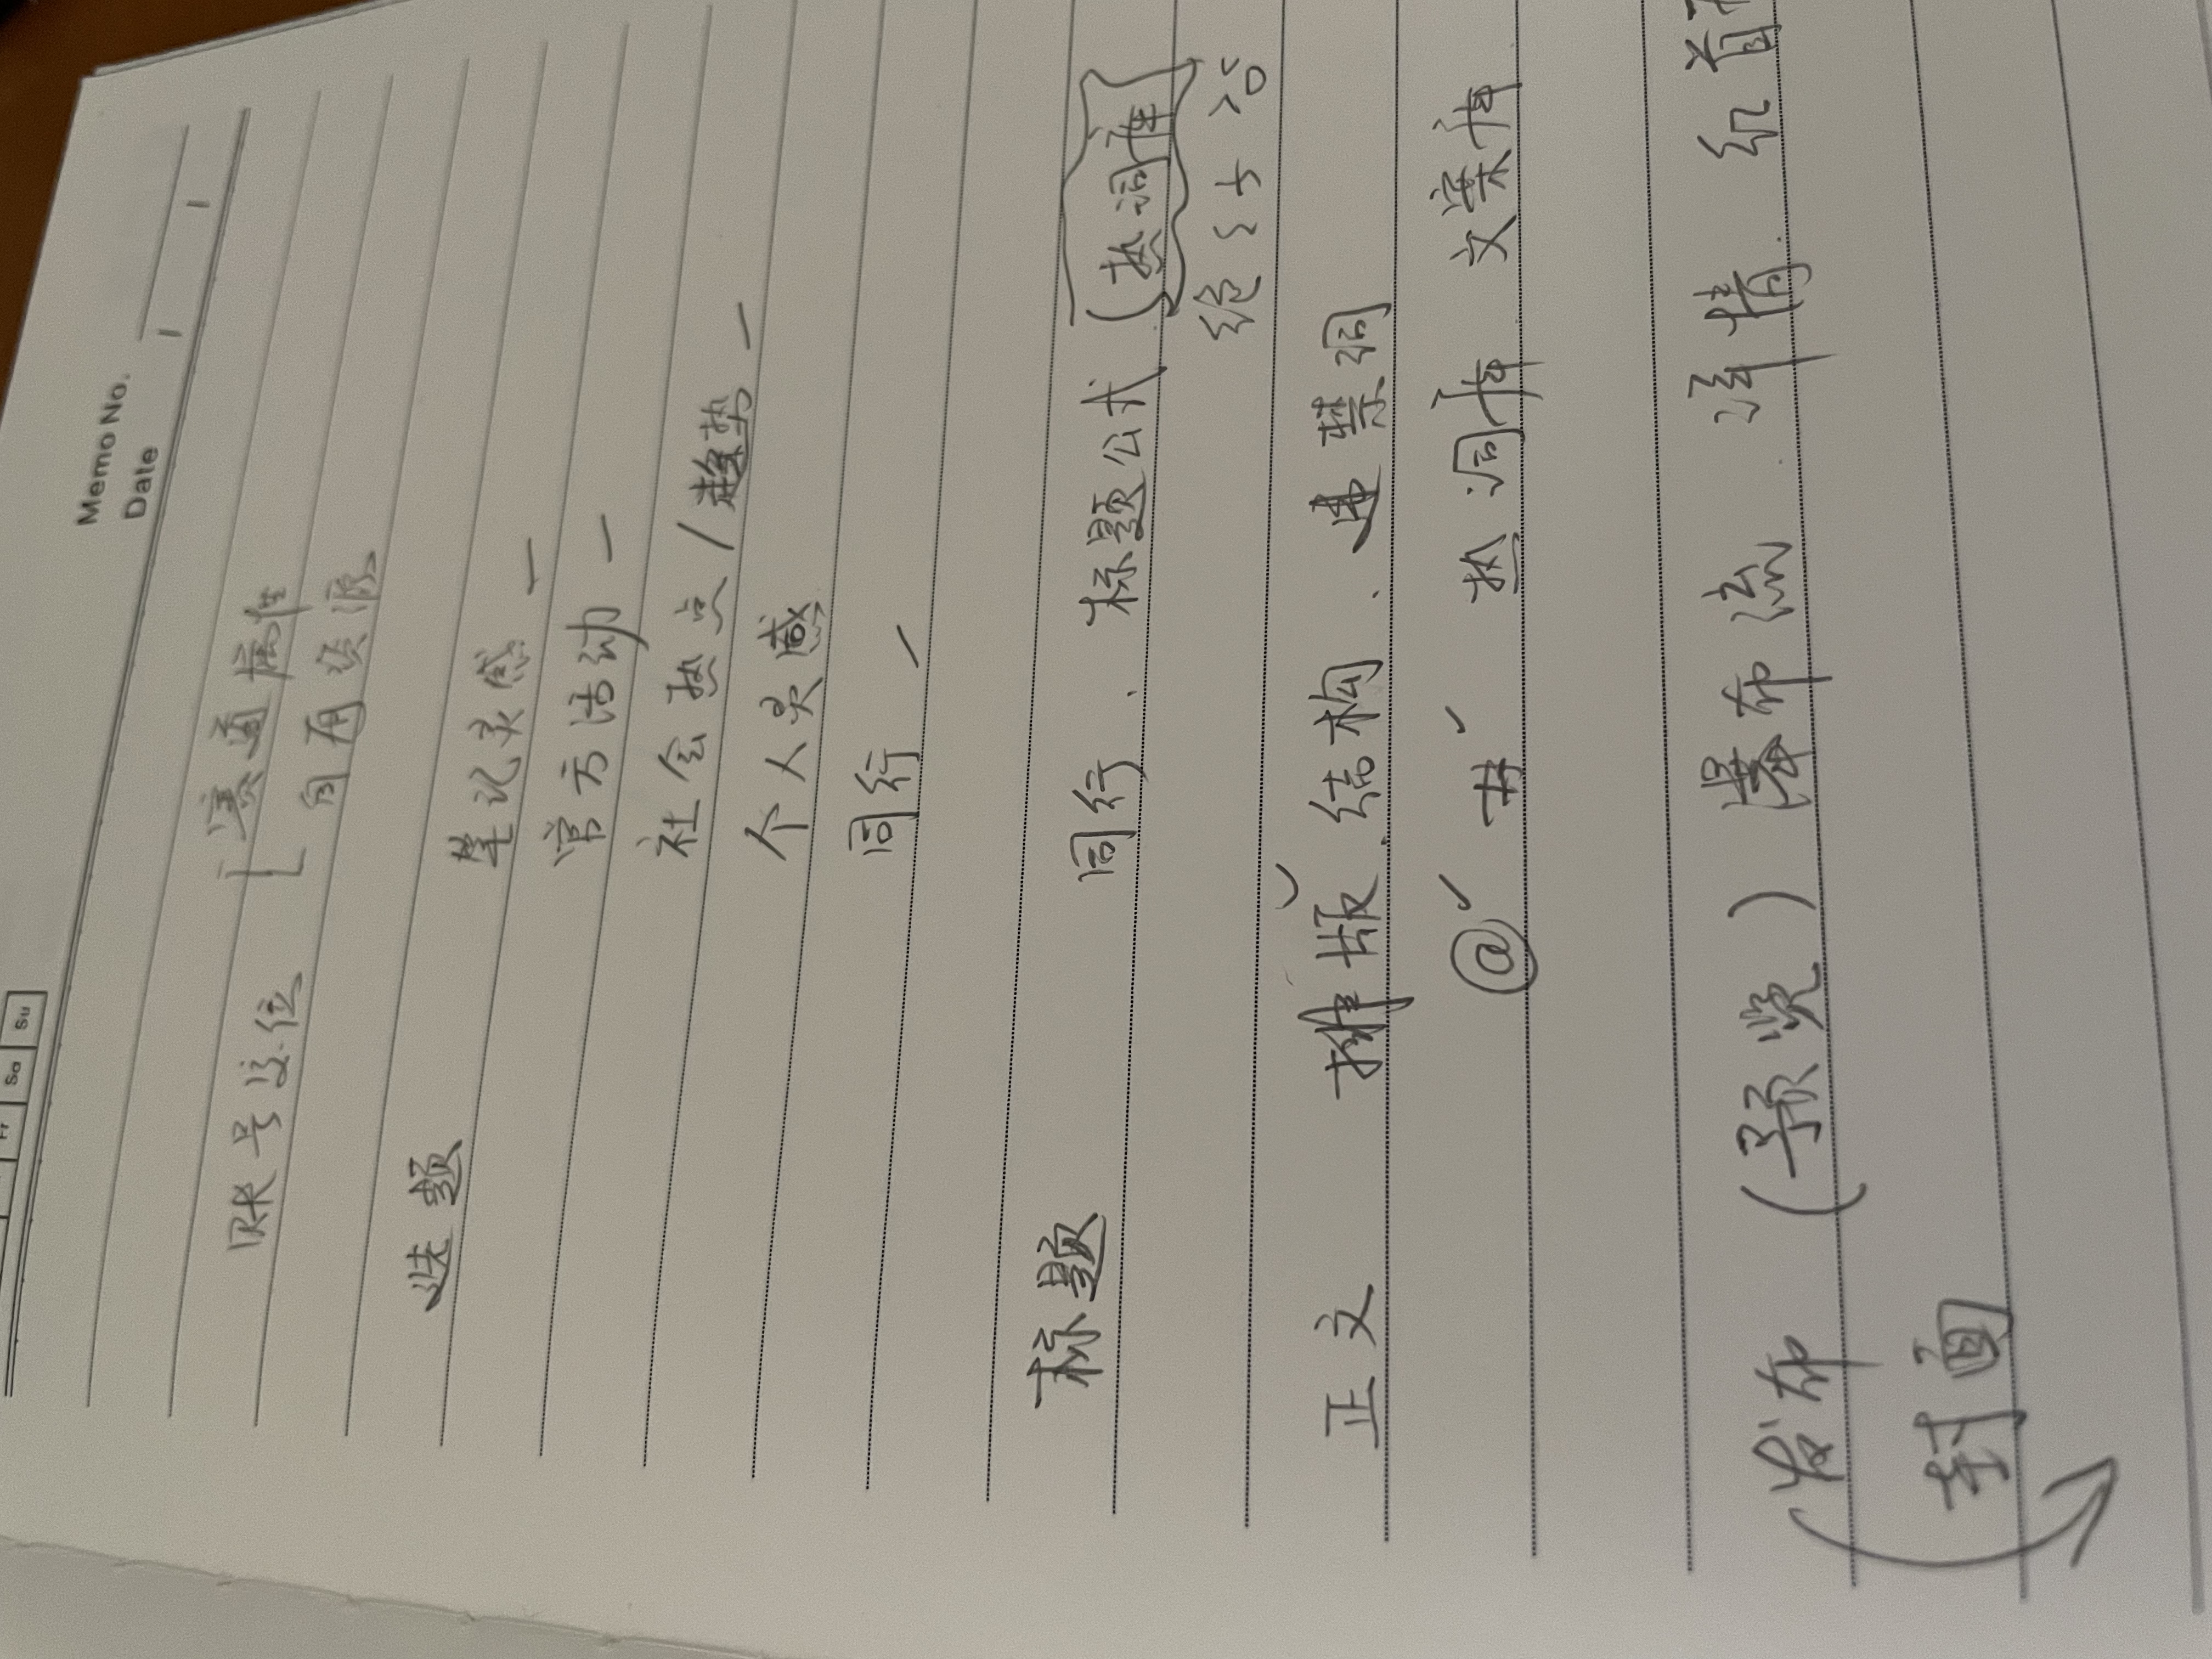 Fr Sa Su
Memo No.
Date / /
账号定位 赛道属性
自有资源
选题
笔记灵感 —
官方活动 —
社会热点 / 趋势 —
个人灵感
同行 —
标题 同行、标题公式 (热词库)
绝
正文 排版、结构、违禁词
@ # 热词库 文案库
发布 (预览) 瀑布流、详情、红首
封面